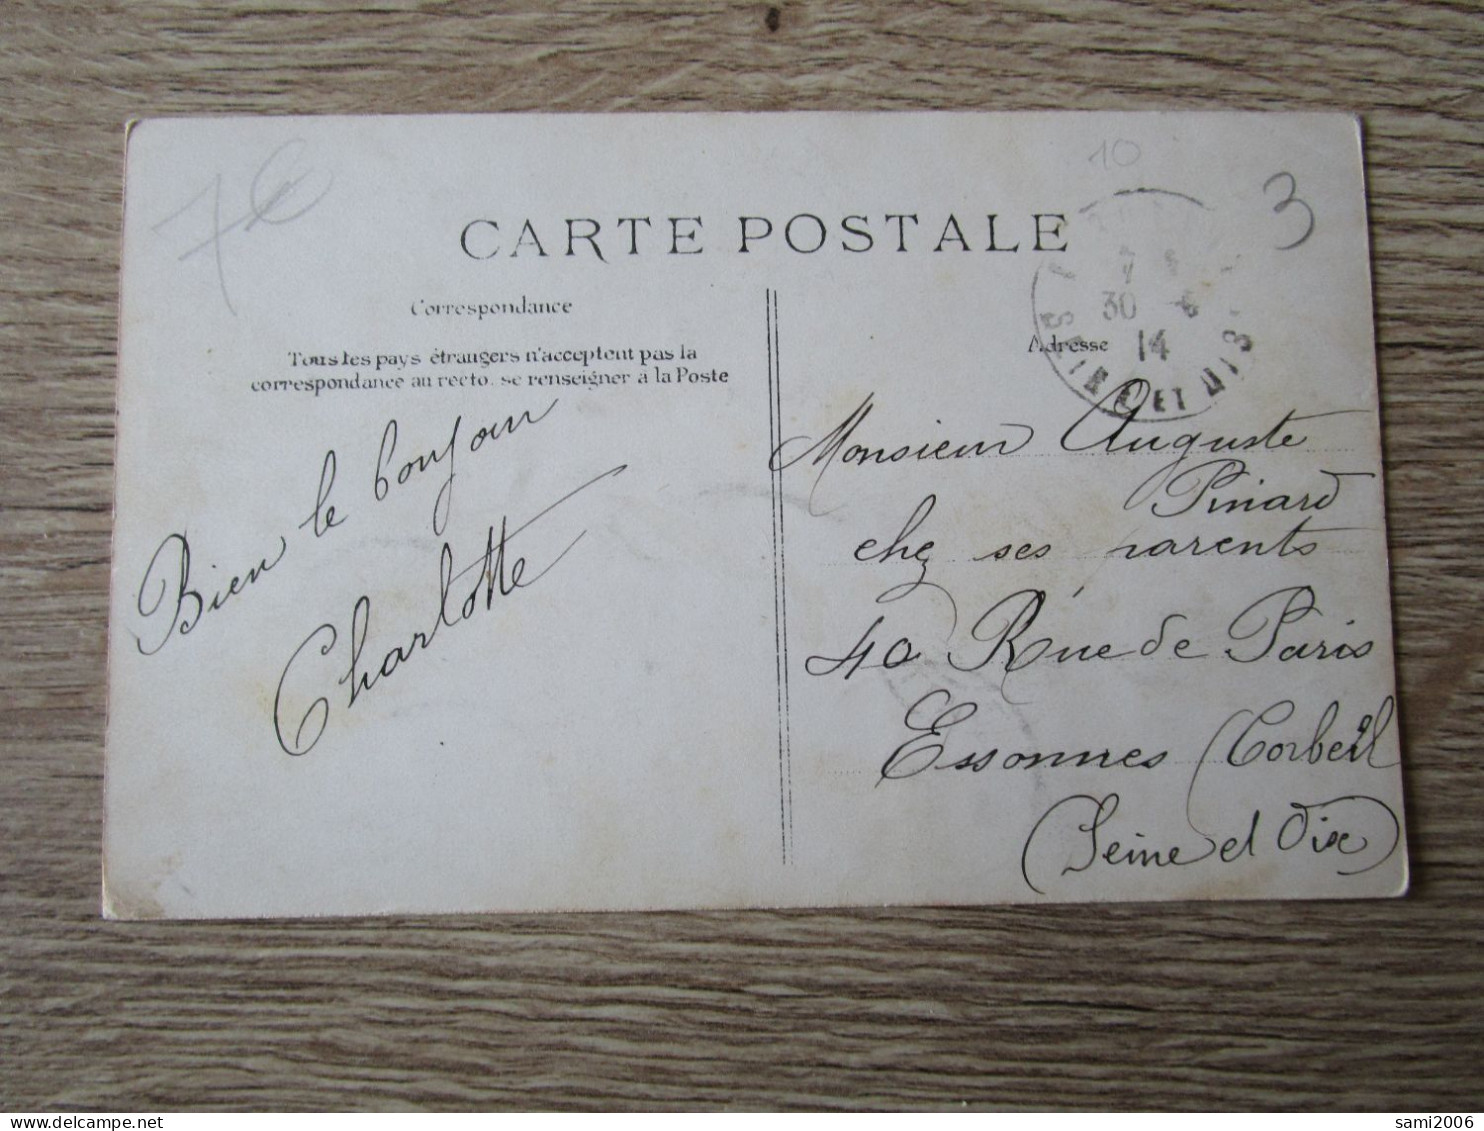 7€
10
3
CARTE POSTALE
Correspondance
Tous les pays étrangers n'acceptent pas la
correspondance au recto. se renseigner à la Poste
Bien le bonjour
Charlotte
30
14
ET
Adresse
Monsieur Auguste
Pinard
chez ses parents
40 Rue de Paris
Essonnes (Corbeil
(Seine et Oise)
sami2006